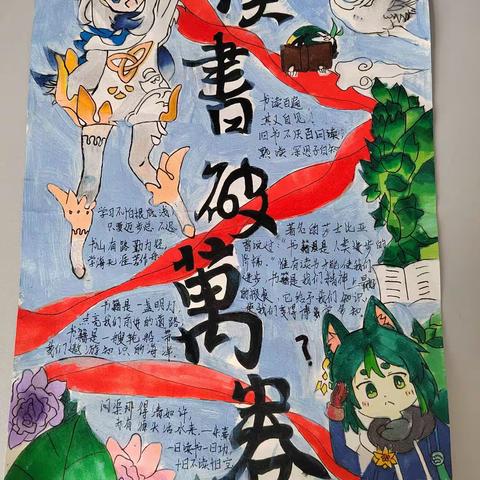 读書破萬卷
书读百遍,
其义自见。
旧书不厌百回读
熟读深思子自知
学习不怕根底浅
只要迈步总不迟
书山有路勤为径
学海无涯苦作舟
著名的莎士比亚
曾说过:“书籍是人类进步的
阶梯。”惟有读书才能使我们
进步,书籍是我们精神上
的粮食,它给予我们知识,
使我们变得
书籍是一盏明灯
点亮我们前中的道路
书籍是一艘轮船,带
我们遨游知识的海洋
问渠那得清如许,
为有源头活水来。
一日读书一日功,
一日不读十日空
?